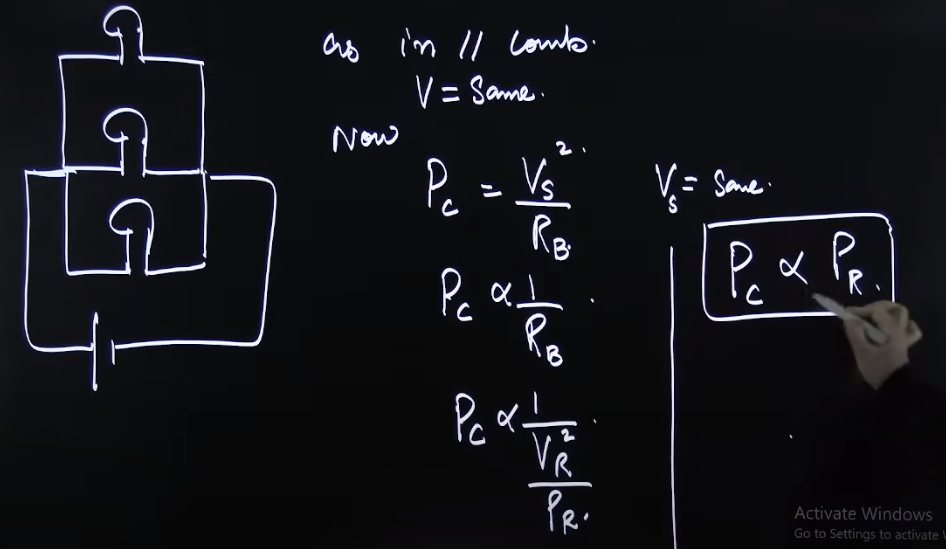 as in // comb.
V = Same.
Now
P_C = V_S² / R_B.
P_C ∝ 1 / R_B .
P_C ∝ 1 / (V_R² / P_R) .
V_S = Same.
P_C ∝ P_R .
Activate Windows
Go to Settings to activate